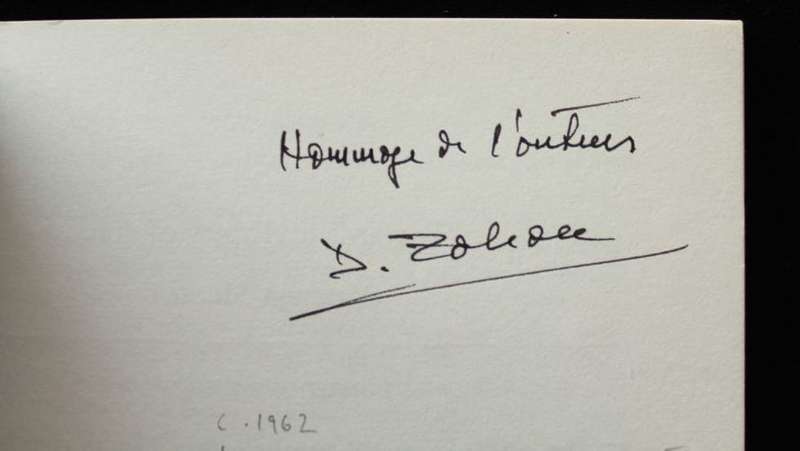 Hommage de l'auteur
D. Zahan
c. 1962